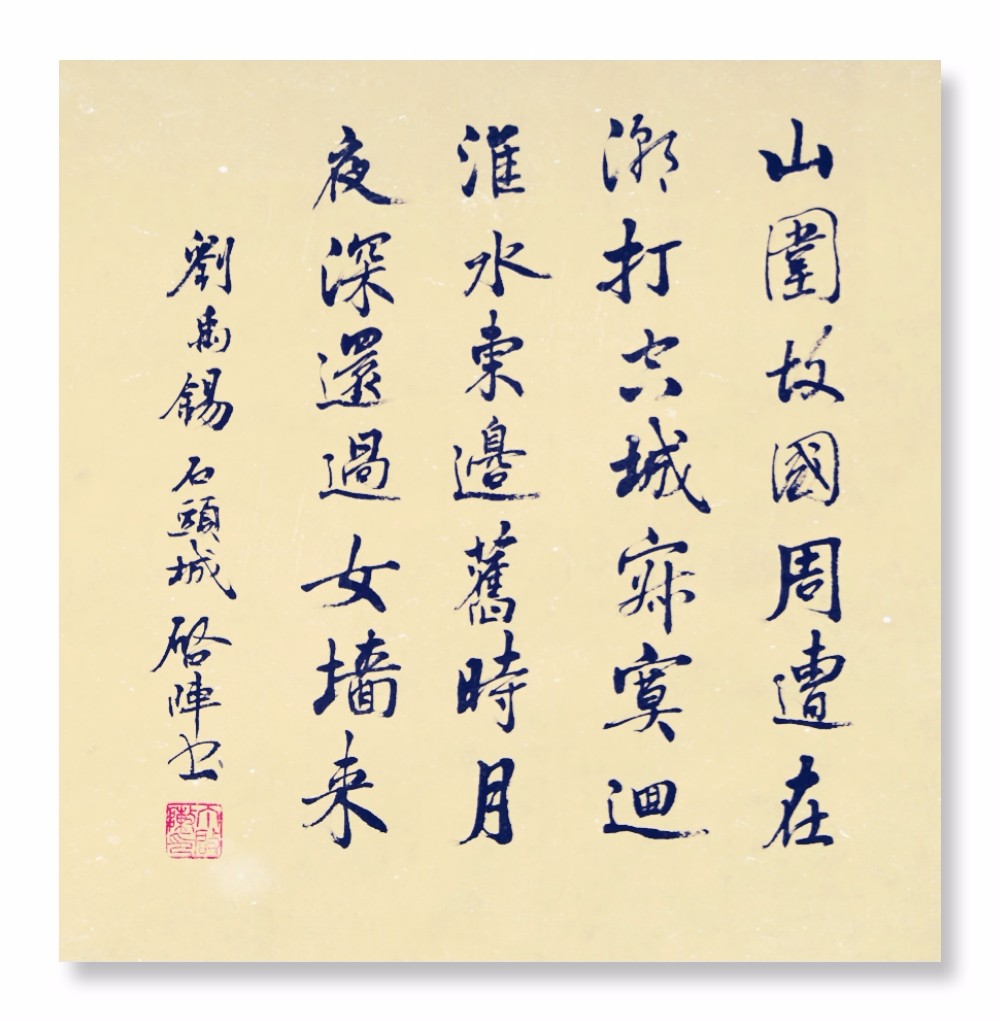 山圍故國周遭在
潮打空城寂寞迴
淮水東邊舊時月
夜深還過女墻来
劉禹錫 石頭城 啓陣书